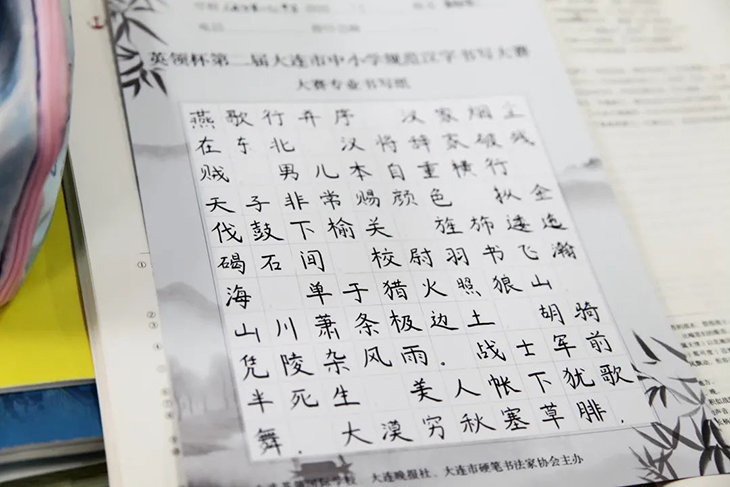 英领杯第二届大连市中小学规范汉字书写大赛
大赛专业书写组
燕歌行并序 汉家烟尘
在东北 汉将辞家破残
贼 男儿本自重横行
天子非常赐颜色 枞金
伐鼓下榆关 旌旆逶迤
碣石间 校尉羽书飞瀚
海 单于猎火照狼山
山川萧条极边土 胡骑
凭陵杂风雨. 战士军前
半死生 美人帐下犹歌
舞. 大漠穷秋塞草腓.
大连晚报社、大连市硬笔书法家协会主办